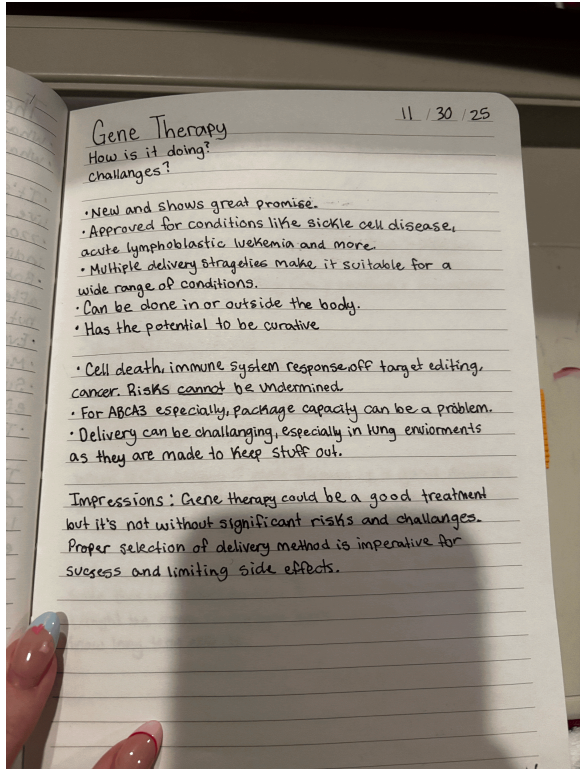 11 / 30 / 25
Gene Therapy
How is it doing?
challanges?
• New and shows great promise.
• Approved for conditions like sickle cell disease,
acute lymphoblastic luekemia and more.
• Multiple delivery strageties make it suitable for a
wide range of conditions.
• Can be done in or outside the body.
• Has the potential to be curative
• Cell death, immune system response, off target editing,
cancer. Risks cannot be undermined.
• For ABCA3 especially, package capacity can be a problem.
• Delivery can be challanging, especially in lung enviorments
as they are made to keep stuff out.
Impressions: Gene therapy could be a good treatment
but it's not without significant risks and challanges.
Proper selection of delivery method is imperative for
sucsess and limiting side effects.